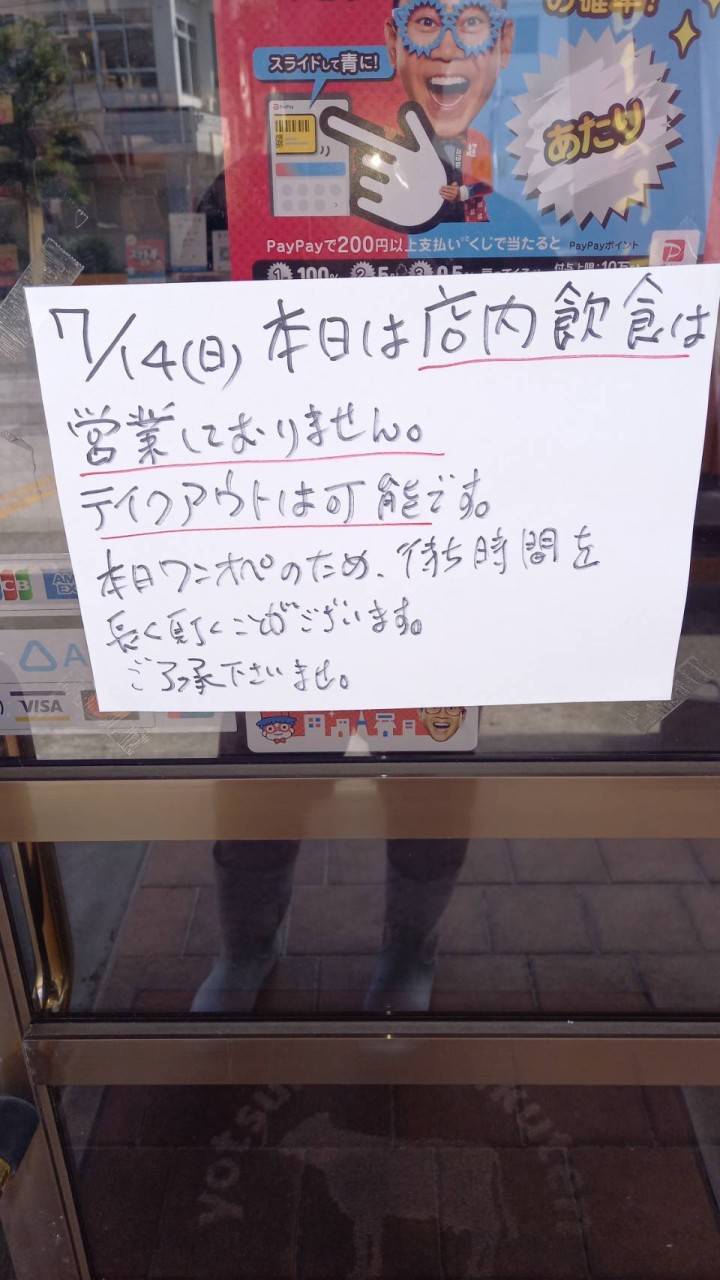 の確率!
スライドして青に!
PayPay
あたり
PayPayで200円以上支払い くじで当たると PayPayポイント
7/14(日) 本日は店内飲食は
営業しておりません。
テイクアウトは可能です。
本日ワンオペのため、待ち時間を
長く頂くことがございます。
ご了承下さいませ。
JCB
AM
EX
VISA
yotsu